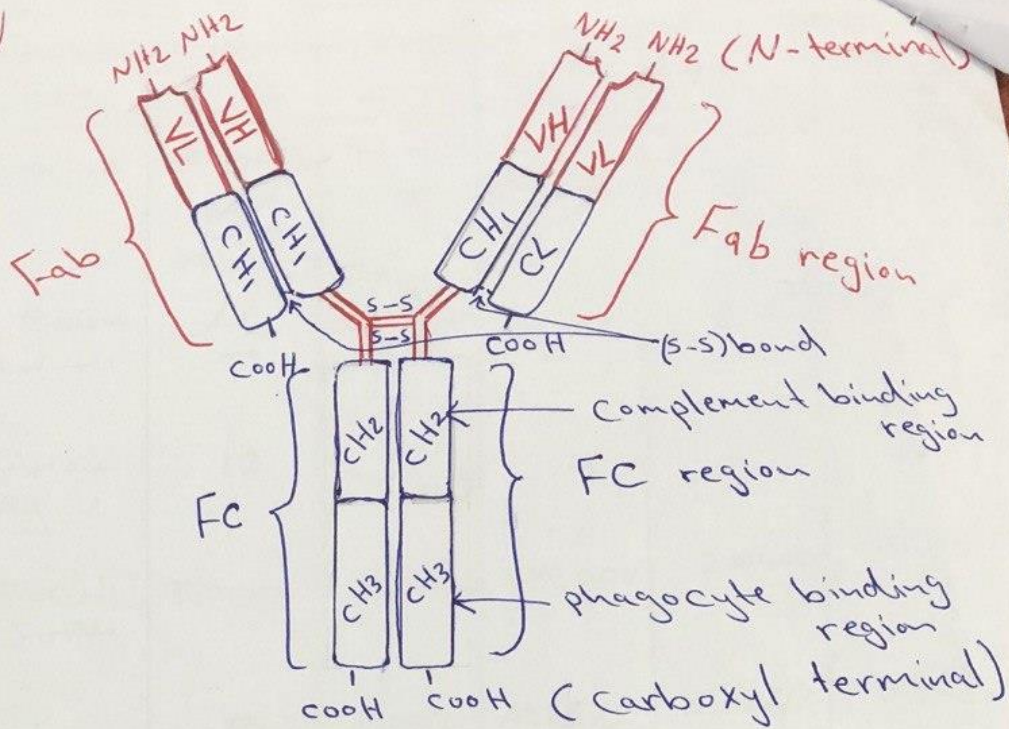 NH2 NH2
NH2 NH2 (N-terminal)
VL VH
VH VL
Fab
CH1 CH1
CH1 CL
Fab region
S-S
S-S
COOH
COOH
(S-S) bond
CH2 CH2
complement binding
region
FC
FC region
CH3 CH3
phagocyte binding
region
COOH COOH (Carboxyl terminal)